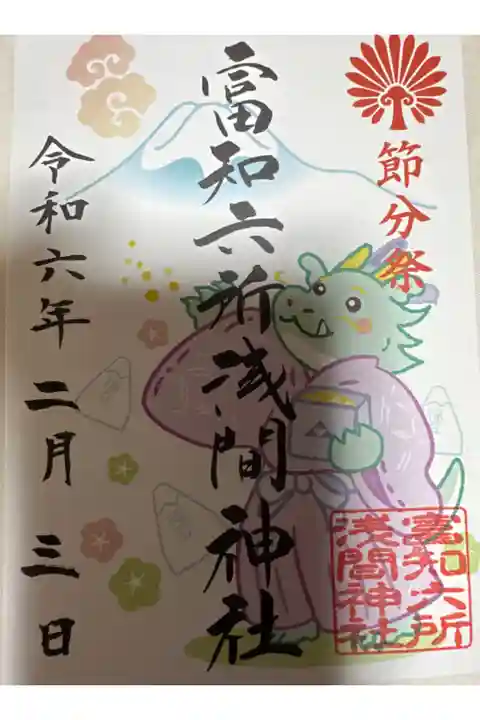 節分祭
富知六所浅間神社
令和六年二月三日
富知六所
浅間神社